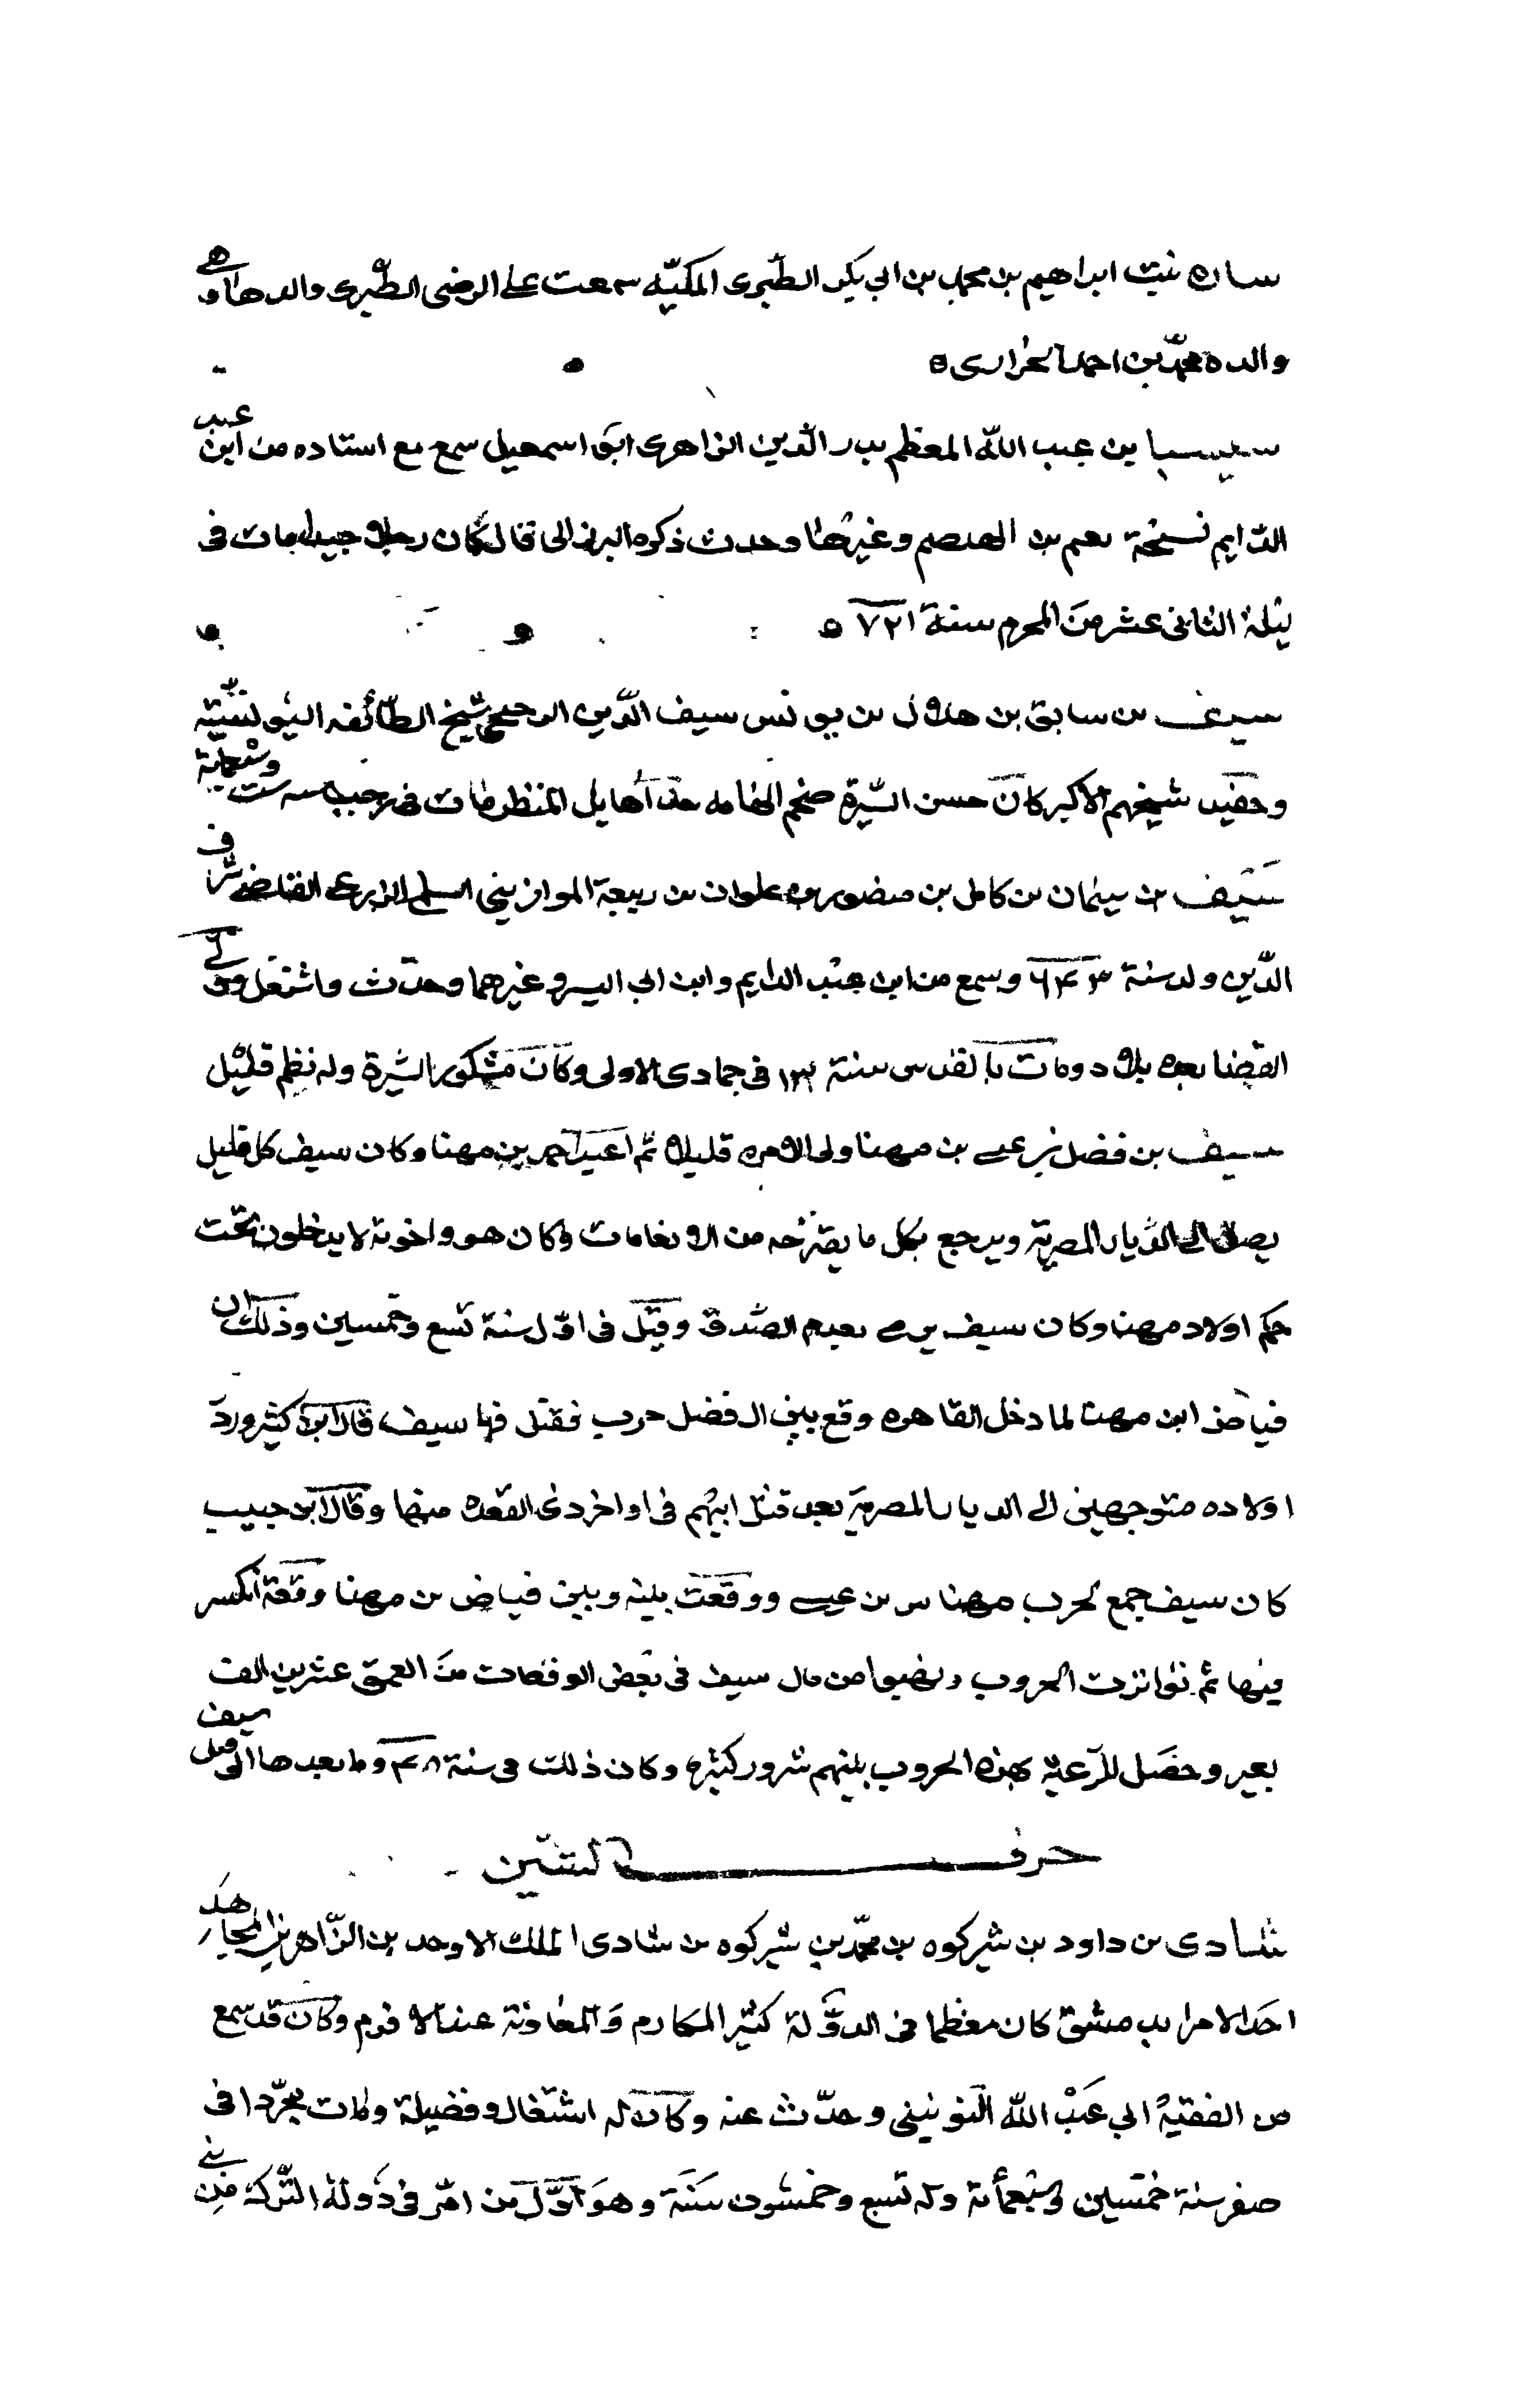 ساره بنت ابراهيم بن محمد بن ابي بكر الطبرى المكيّه سمعت على الرضى الطبرى والدها وهي
والده محمد بن احمد الحرارى ه
بن عبد اللّه المعظم بدر الدين الزاهرى ابو اسمعيل سمع مع استاده من ابن عبد
الدايم نسخة نعيم بن الهيصم وغيرها وحدث ذكره البرزالى قال كان رجلا جيدا مات فى
ليلة الثانى عشر من المحرم سنة ٧٢١ ه
سيف بن سابق بن هلال بن يونس سيف الدّين الرجيحى شيخ الطائفه اليونسيّة
وحفيد شيخهم الاكبر كان حسن السّيرة ضخم هايل المنظر مات فى رجب سنه ست وسبعماية
سَيف بن سليمان بن كامل بن منصور بن علوان بن ربيعة الموازينى السلمى الزرعى القاضى شرف
الدّين ولد سنة ٦٤٣ وسمع من ابن عبد الدايم وابن ابى اليسر وغيرهما وحدّث واشتغل وولى
القضا بعده بلاد ومات بالقدس سنة فى جمادى الاولى وكان مشكور السّيرة وله نظم قليل
سيف بن فضل بن عيسى بن مهنا ولى الامره قليلا ثم اعيد احمد بن مهنا وكان سيف كل قليل
يصل الى الدّيار المصرية ويرجع بكل ما يقترحه من الانعامات وكان هو واخوته لا يدخلون تحت
حكم اولاد مهنا وكان سيف يرمى بعدم الصّدق وقتل فى اوّل سنة تسع وخمسين وذلك ان
فياض ابن مهنا لما دخل القاهره وقع بين ال فضل حرب فقتل فيها سيف قال ابن كثير ورد
اولاده متوجهين الى الديار المصرية بعد قتل ابيهم فى اواخر ذى القعده منها وقال ابن حبيب
كان سيف جمع لحرب مهنا بن عيسى ووقعت بينه وبين فياض بن مهنا وقعة انكسر
فيها ثم تواترت الحروب ونهبوا من مال سيف فى بعض الوقعات من العمق عشرين الف
بعير وحصل للرّعية بهذه الحروب بينهم شرور كثيره وكان ذلك فى سنة ٤٨ وما بعدها الى قتل سيف
حرف الشين
شادى بن داود بن شيركوه بن محمّد بن شيركوه بن شادى الملك الاوحد بن الزّاهر بن المجاهد
احد الامرا بدمشق كان معظما فى الدولة كثير المكارم والمعاونة عند الافرم وكان قد سمع
من الفقيه ابى عبد اللّه اليونينى وحدّث عنه وكان له اشتغال وفضيلة ومات مجرّدا فى
صفر سنة خمسين وسبعمأئة وله تسع وخمسون سنة وهو اوّل من امّر فى دولة التّرك من بنى